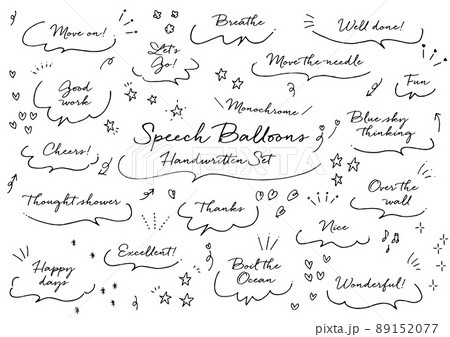 Move on!
Breathe
Well done!
Let's
Go!
Move the needle
Good
work
Fun
Monochrome
Blue sky
thinking
Speech Balloons
Handwritten Set
Cheers!
Over the
wall
Thought shower
Thanks
Nice
Excellent!
Happy
days
Boil the
Ocean
Wonderful!
pixta.jp - 89152077